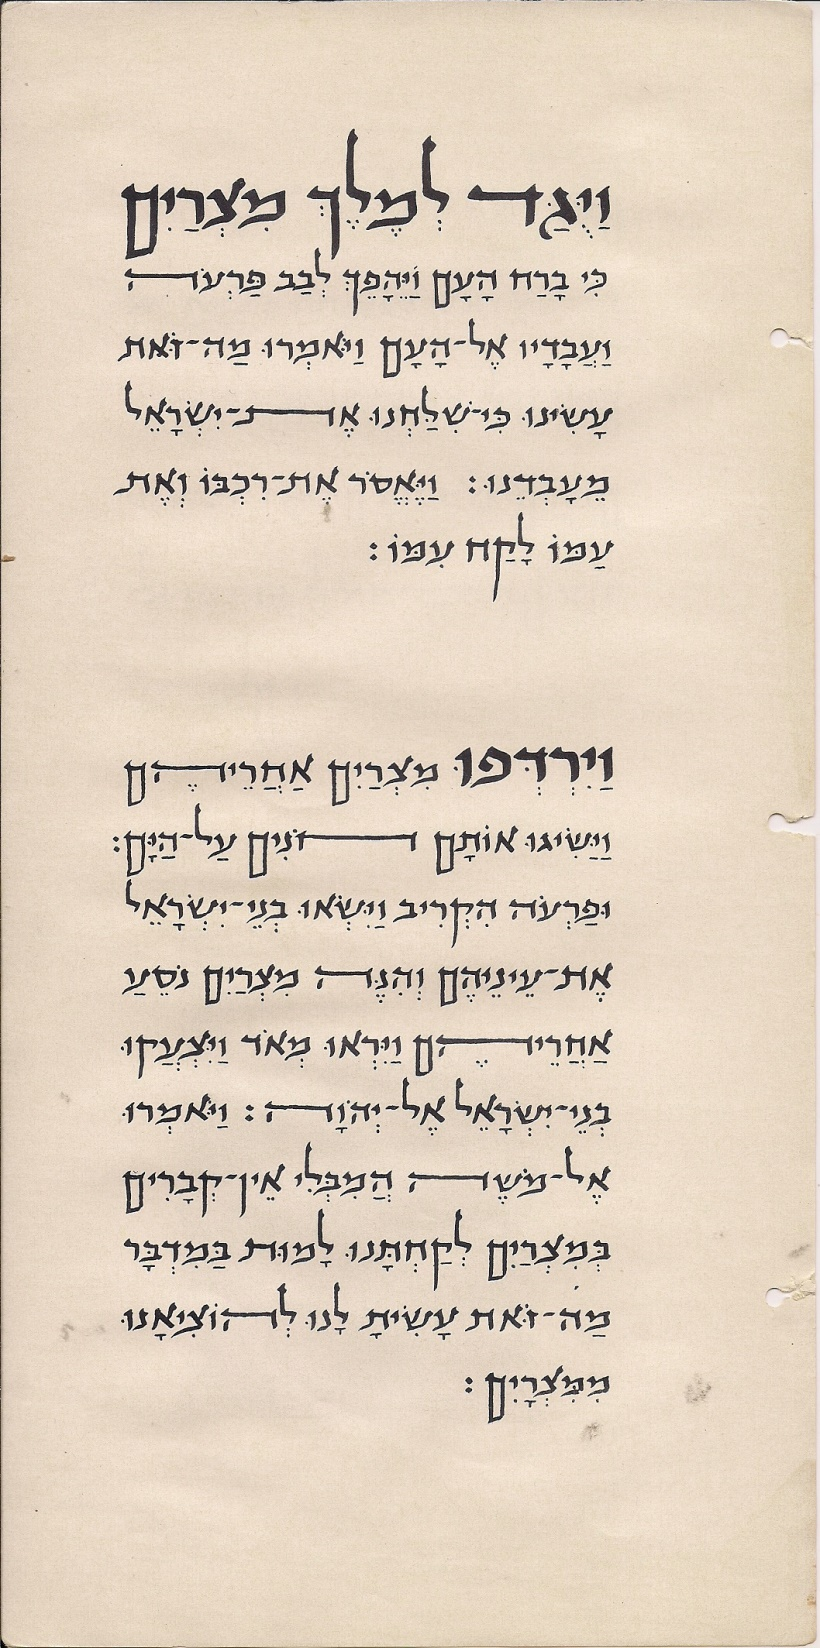 וַיֻּגַּד לְמֶלֶךְ מִצְרַיִם
כִּי בָרַח הָעָם וַיֵּהָפֵךְ לְבַב פַּרְעֹה
וַעֲבָדָיו אֶל-הָעָם וַיֹּאמְרוּ מַה-זֹּאת
עָשִׂינוּ כִּי-שִׁלַּחְנוּ אֶת-יִשְׂרָאֵל
מֵעָבְדֵנוּ: וַיֶּאְסֹר אֶת-רִכְבּוֹ וְאֶת
עַמּוֹ לָקַח עִמּוֹ:
וַיִּרְדְּפוּ מִצְרַיִם אַחֲרֵיהֶם
וַיַּשִּׂיגוּ אוֹתָם חֹנִים עַל-הַיָּם:
וּפַרְעֹה הִקְרִיב וַיִּשְׂאוּ בְנֵי-יִשְׂרָאֵל
אֶת-עֵינֵיהֶם וְהִנֵּה מִצְרַיִם נֹסֵעַ
אַחֲרֵיהֶם וַיִּירְאוּ מְאֹד וַיִּצְעֲקוּ
בְנֵי-יִשְׂרָאֵל אֶל-יְהֹוָה: וַיֹּאמְרוּ
אֶל-מֹשֶׁה הֲמִבְּלִי אֵין-קְבָרִים
בְּמִצְרַיִם לְקַחְתָּנוּ לָמוּת בַּמִּדְבָּר
מַה-זֹּאת עָשִׂיתָ לָּנוּ לְהוֹצִיאָנוּ
מִמִּצְרָיִם: